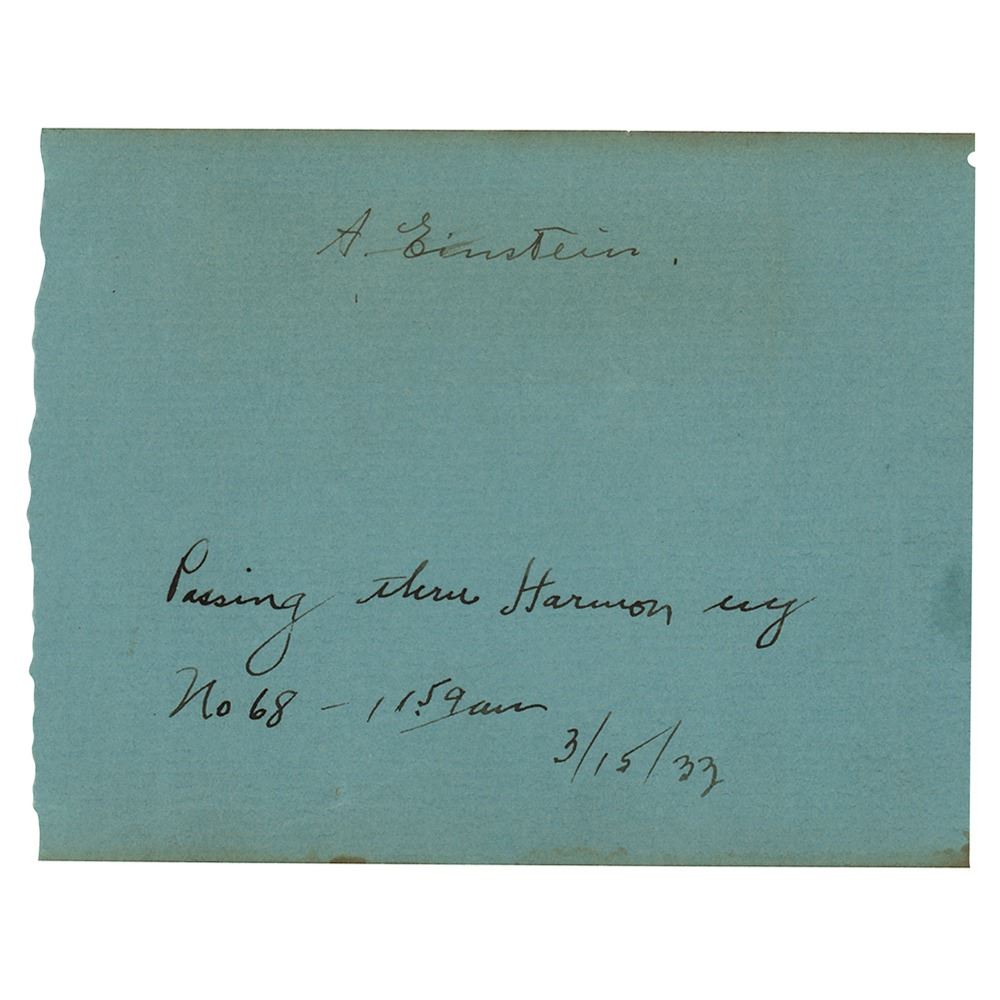 A. Einstein.
Passing thru Harmon ny
No 68 - 11 59 am
3/15/33